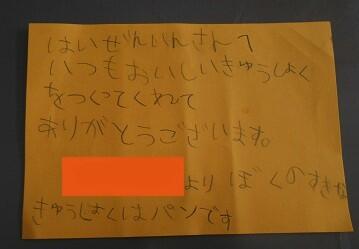 はいぜんいんさんへ
いつもおいしいきゅうしょく
をつくってくれて
ありがとうございます。
よりぼくのすきな
きゅうしょくはパンです